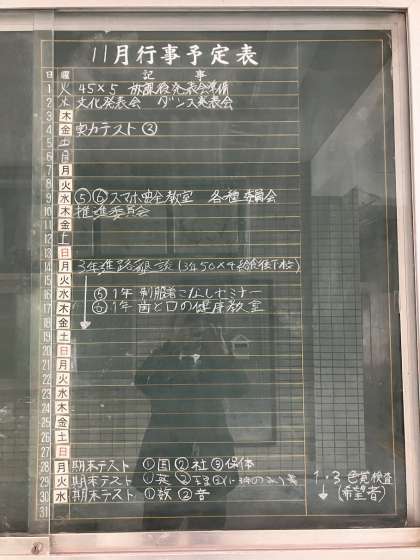 11月行事予定表
日 曜 記 事
1 火 45×5 放課後発表会準備
2 水 文化発表会 ダンス発表会
3 木
4 金 実力テスト ③
5 土
6 日
7 月
8 火
9 水 ⑤⑥スマホ安全教室 各種委員会
10 木 推進委員会
11 金
12 土
13 日
14 月 3年進路懇談(3年50×4給食後下校)
15 火
16 水 ⑤1年 制服着こなしセミナー
17 木 ⑥1年 歯と口の健康教室
18 金
19 土
20 日
21 月
22 火
23 水
24 木
25 金
26 土
27 日
28 月 期末テスト ①国②社③保体
29 火 期末テスト ①英②
30 水 期末テスト ①数②音
31
1.3 色覚検査
(希望者)